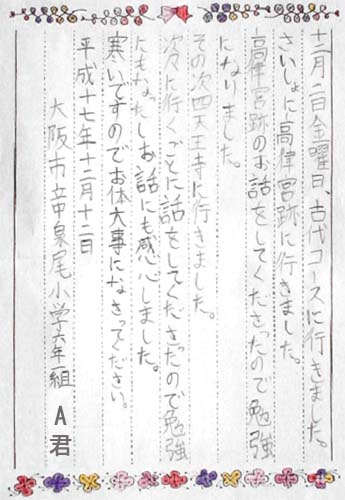 十二月二日金曜日、古代コースに行きました。
さいしょに高津宮跡に行きました。
高津宮跡のお話をしてくださったので勉強
になりました。
その次四天王寺に行きました。
次々に行くごとに話をしてくださったので勉強
にもなったしお話にも感心しました。
寒いですのでお体大事になさってください。
平成十七年十二月十二日
大阪市立中泉尾小学六年一組
A君